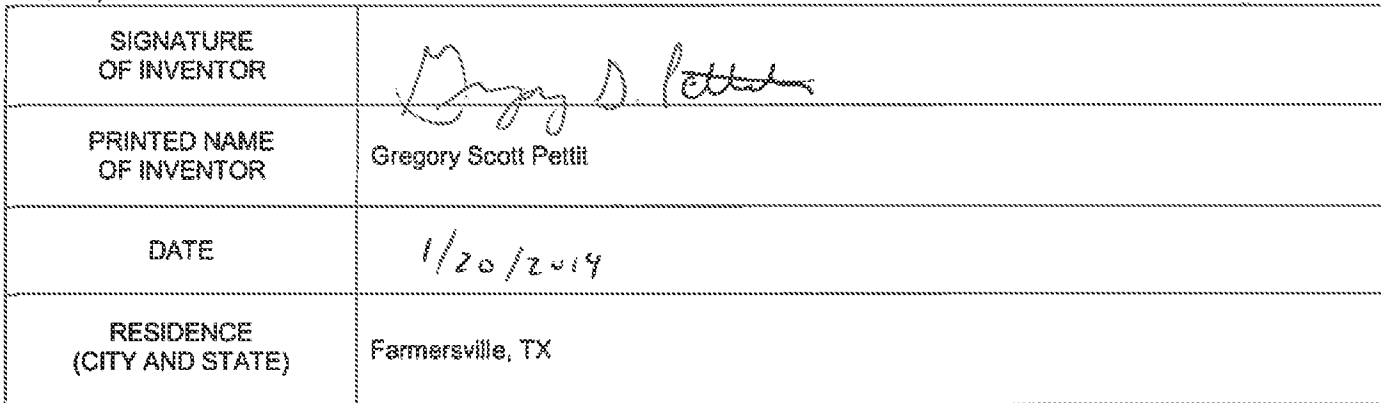 SIGNATURE
OF INVENTOR
Gregory S. Pettit
PRINTED NAME
OF INVENTOR
Gregory Scott Pettit
DATE
1/20/2014
RESIDENCE
(CITY AND STATE)
Farmersville, TX